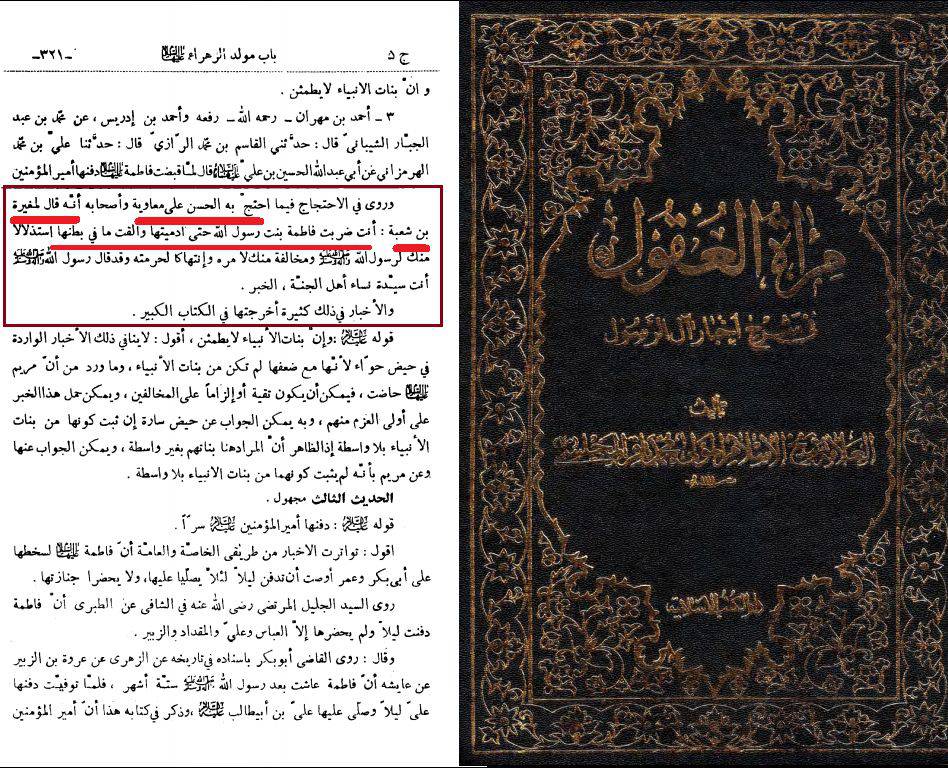 ج ٥ باب مولد الزهراء عليها السلام -٣٢١-
و انّ بنات الانبياء لايطمثن .
٣ ـ أحمد بن مهران ـ رحمه الله ـ رفعه وأحمد بن إدريس ، عن محمّد بن عبد
الجبّار الشيبانيّ قال : حدّثني القاسم بن محمّد الرّازيّ قال : حدّثنا عليّ بن محمّد
الهرمزاني عن أبي عبدالله الحسين بن عليّ عليهما السلام قال لمّا قبضت فاطمة عليها السلام دفنها أمير المؤمنين
وروى في الاحتجاج فيما احتجّ به الحسن على معاوية وأصحابه أنّه قال لمغيرة
بن شعبة : أنت ضربت فاطمة بنت رسول الله حتى أدميتها وألقت ما في بطنها إستذلالاً
منك لرسول الله صلى الله عليه وآله ومخالفة منك لأمره وإنتهاكاً لحرمته وقد قال رسول الله صلى الله عليه وآله
أنت سيّدة نساء أهل الجنّة ، الخبر .
والأخبار في ذلك كثيرة أخرجتها في الكتاب الكبير .
قوله عليه السلام : وإنّ بنات الأنبياء لايطمثن ، أقول : لاينافي ذلك الأخبار الواردة
في حيض حوّاء لأنّها مع ضعفها لم تكن من بنات الأنبياء ، وما ورد من أنّ مريم
عليها السلام حاضت ، فيمكن أن يكون تقية أو إلزاماً على المخالفين ، ويمكن حمل هذا الخبر
على أولى العزم منهم ، وبه يمكن الجواب عن حيض سارة إن ثبت كونها من بنات
الأنبياء بلا واسطة إذ الظاهر أنّ المراد هنا بناتهم بغير واسطة ، ويمكن الجواب عنها
وعن مريم بأنّه لم يثبت كونهما من بنات الانبياء بلا واسطة .
الحديث الثالث مجهول .
قوله عليه السلام : دفنها أمير المؤمنين عليه السلام سرّاً .
اقول : تواترت الاخبار من طريقى الخاصّة والعامّة أنّ فاطمة عليها السلام لسخطها
على أبي بكر وعمر أوصت أن تدفن ليلاً لئلاّ يصلّيا عليها، ولا يحضرا جنازتها .
روى السيد الجليل المرتضى رضى الله عنه في الشافي عن الطبرى أنّ فاطمة
دفنت ليلاً ولم يحضرها إلاّ العباس وعليّ والمقداد والزبير .
وقال : روى القاضى أبوبكر باسناده في تاريخه عن الزهرى عن عروة بن الزبير
عن عايشه أنّ فاطمة عاشت بعد رسول الله صلى الله عليه وآله ستّة أشهر ، فلمّا توفيّت دفنها
عليّ ليلاً وصلّى عليها عليّ بن أبيطالب عليه السلام ، وذكر في كتابه هذا أنّ أمير المؤمنين
مرآة العقول
في شرح أخبار آل الرسول
تأليف
العلامة شيخ الإسلام المولى محمد باقر المجلسي
دار الكتب الإسلامية